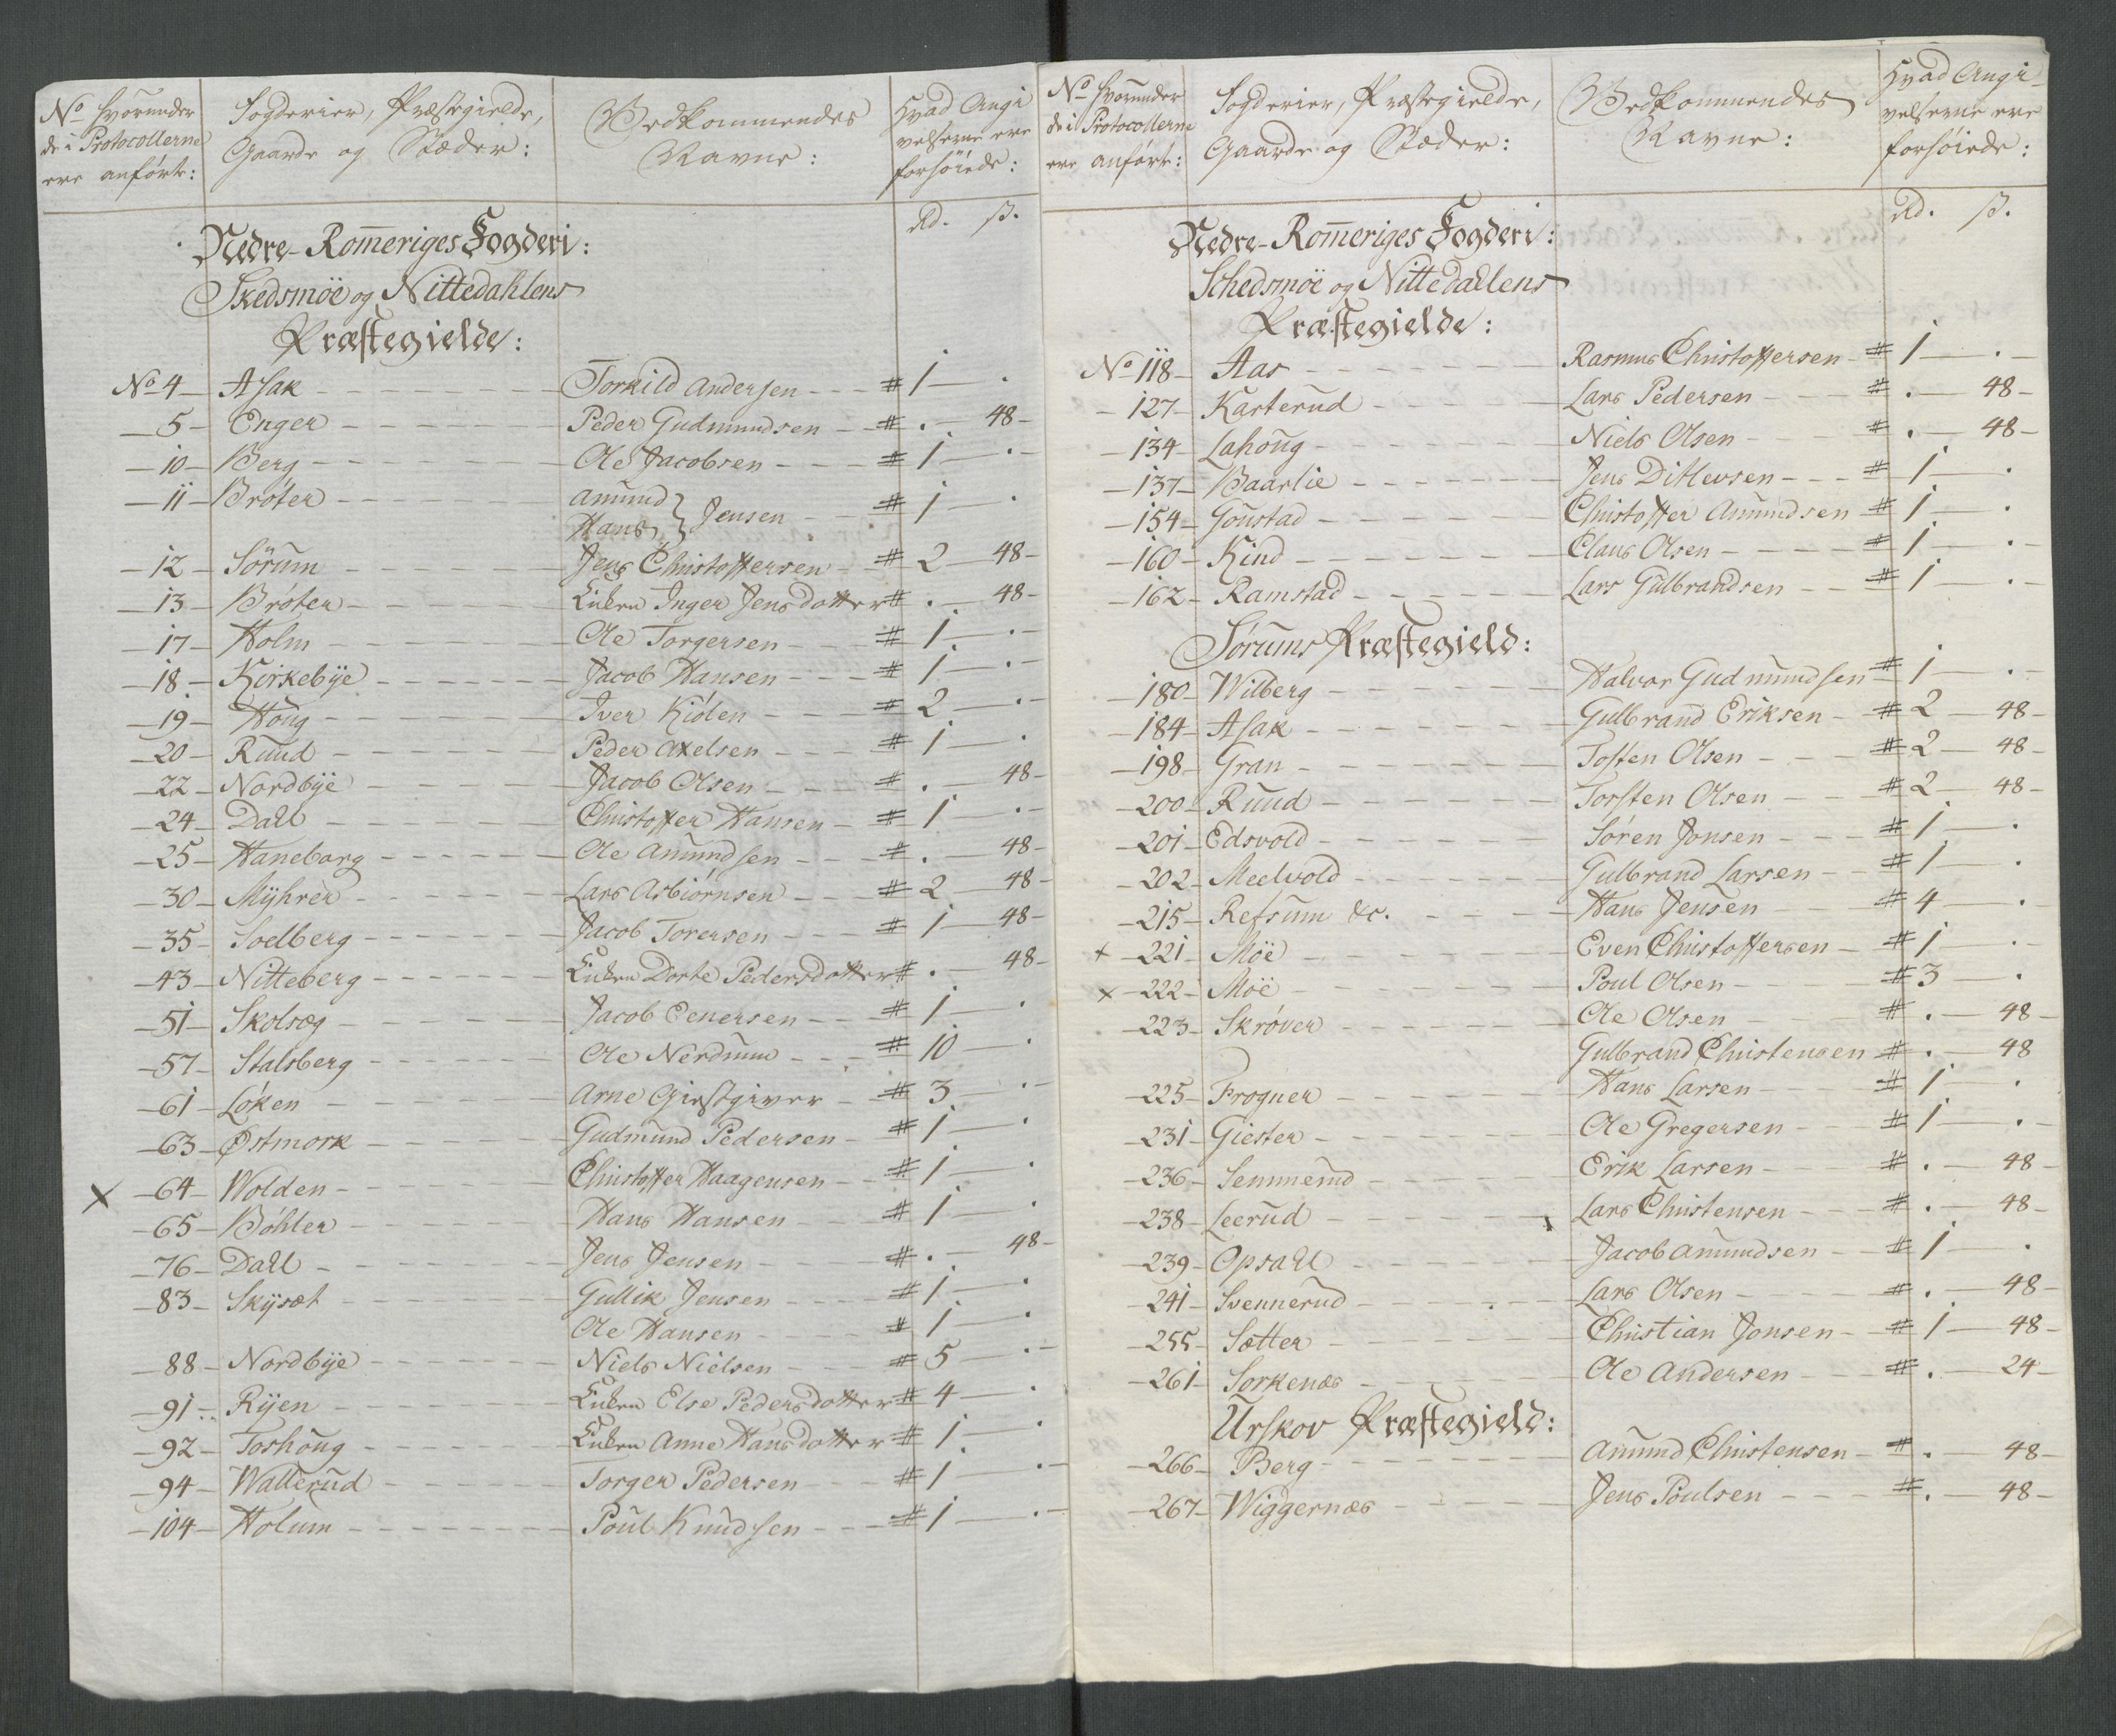 No hvorunder
de i Protocollerne
ere anförte:
Fogderier, Præstegielde,
Gaarde og Stæder:
Vedkommendes
Navne:
Hvad Angi
velserne ere
forhöiede:
Rd. ß.
Nedre-Rom̄eriges Fogderi:
Skedsmöe og Nittedahlens
Præstegielde:
No 4 - Asak - Torkild Andersen - # 1 - .
- 5 - Enger - Peder Gudmundsen - # . - 48 -
- 10 - Berg - Ole Jacobsen - # 1 - . -
- 11 - Bröter - Amund
Hans } Jensen - # 1 - .
- 12 - Sörum - Jens Christoffersen - # 2 - 48 -
- 13 - Bröter - Enken Inger Jensdotter # . - 48 -
- 17 - Holm - Ole Torgersen - # 1 - . -
- 18 - Kirkebÿe - Jacob Hansen - # 1 - . -
- 19 - Houg - Iver Kiölen - # 2 - . -
- 20 - Ruud - Peder Axelsen - # 1 - .
- 22 - Nordbÿe - Jacob Olsen - # . - 48 -
- 24 - Dahl - Christoffer Hansen - # 1 - . -
- 25 - Haneborg - Ole Amundsen - # . - 48 -
- 30 - Mÿhrer - Lars Asbiörnsen - # 2 - 48 -
- 35 - Soelberg - Jacob Torersen - # 1 - 48 -
- 43 - Nitteberg - Enken Dorte Pedersdotter # . - 48 -
- 51 - Skolsæg - Jacob Eenersen - # 1 - .
- 57 - Stalsberg - Ole Nerdrum - # 10 - .
- 61 - Löken - Arne Giestgiver - # 3 - . -
- 63 - Østmork - Gudmund Pedersen - # 1 - .
x - 64 - Wolden - Christoffer Haagensen - # 1 - .
- 65 - Böhler - Hans Hansen - # 1 - .
- 76 - Dahl - Jens Jensen - # . - 48 -
- 83 - Skÿsæt - Gullik Jensen - # 1 - .
Ole Hansen - # 1 - .
- 88 - Nordbÿe - Niels Nielsen - # 5 - . -
- 91 - Rÿen - Enken Else Pedersdotter # 4 - .
- 92 - Toshoug - Enken Anne Hansdotter # 1 - .
- 94 - Wallerud - Torger Pedersen - # 1 - . -
- 104 - Holum - Poul Knudsen - # 1 - . -
No hvorunder
de i Protocollerne
ere anförte:
Fogderier, Præstegielde,
Gaarde og Stæder:
Vedkommendes
Navne:
Hvad Angi
velserne ere
forhöiede:
Rd. ß.
Nedre-Rom̄eriges Fogderi:
Schedsmöe og Nittedallens
Præstegielde:
No 118 - Aas - Rasmus Christoffersen - # 1 - . -
- 127 - Karterud - Lars Pedersen - # . - 48 -
- 134 - Lahoug - Niels Olsen - # . - 48 -
- 137 - Baarlie - Jens Ditlevsen - # 1 - .
- 154 - Goustad - Christoffer Amundsen # 1 - .
- 160 - Kind - Claus Olsen - # 1 - . -
- 162 - Ramstad - Lars Gulbrandsen - # 1 - . -
Sörums Præstegield:
- 180 - Wilberg - Halvor Gudmundsen # 1 - . -
- 184 - Asak - Gulbrand Eriksen - # 2 - 48 -
- 198 - Gran - Tosten Olsen - # 2 - 48 -
- 200 - Ruud - Torsten Olsen - # 2 - 48 -
- 201 - Edsvold - Sören Jonsen - # 1 - .
- 202 - Meelvold - Gulbrand Larsen - # 1 - .
- 215 - Refsum &c. - Hans Jensen - # 4 - .
x - 221 - Möe - Even Christoffersen - # 1 - . -
x - 222 - Möe - Poul Olsen - # 3 - .
- 223 - Skröver - Ole Olsen - # . - 48 -
Gulbrand Christensen # . - 48
- 225 - Frogner - Hans Larsen - # 1 - .
- 231 - Giester - Ole Gregersen - # 1 - . -
- 236 - Semmerud - Erik Larsen - # . - 48 -
- 238 - Leerud - Lars Christensen - # . - 48 -
- 239 - Opsahl - Jacob Amundsen - # 1 - .
- 241 - Svennerud - Lars Olsen - # . - 48 -
- 255 - Sætter - Christian Jonsen - # 1 - 48 -
- 261 - Sorkenæs - Ole Andersen - # . - 24 -
Urskov Præstegield:
- 266 - Berg - Amund Christensen - # . - 48 -
- 267 - Wiggernæs - Jens Poulsen - # . - 48 -